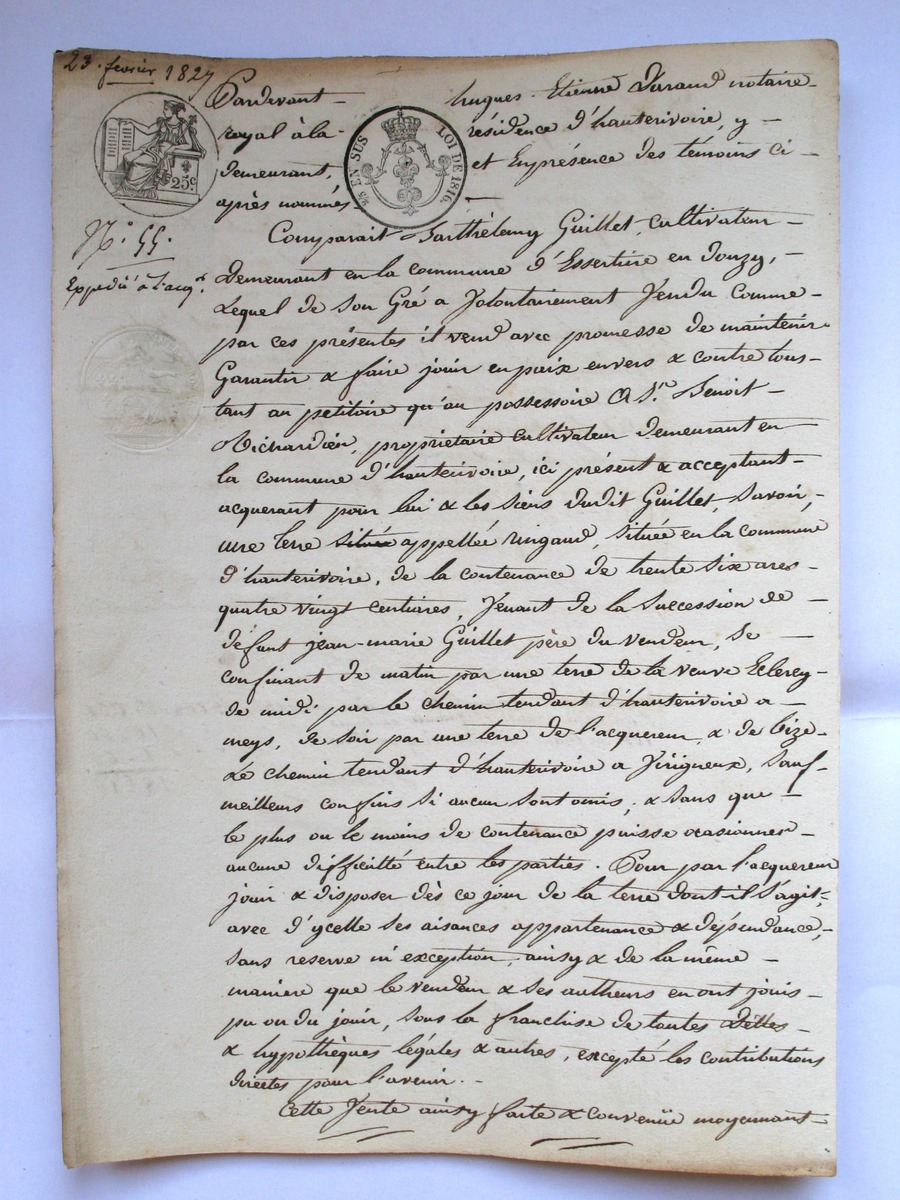 23. fevrier 1827
25c
25 EN SUS LOI DE 1816.
N.o 55.
Expedié à l'acq.r
Pardevant hugues-Etienne Durand notaire
royal à la résidence d'hauterivoire, y
demeurant, et En présence des témoins ci-
après nommés
Comparait Barthélemy Guillet, cultivateur
Demeurant en la commune d'Essertine en Donzy,
Lequel de son Gré a Volontairement Vendu comme
par ces présentes il vend avec promesse de maintenir
Garantir & faire jouir en paix envers & contre tous
tant au petitoire qu'au possessoire A S.r Benoit
Richardien, proprietaire cultivateur demeurant en
la commune d'hauterivoire, ici présent & acceptant
acquerant pour lui & les siens dudit Guillet, savoir,
une terre située appellée ringaud, située en la commune
d'hauterivoire, de la contenance de trente six ares
quatre vingt centiares, Venant de la succession de
défunt jean-marie Guillet père du vendeur, se
confinant de matin par une terre de la veuve Eclercy
de midi par le chemin tendant d'hauterivoire a
meys, de soir par une terre de l'acquereur, & de bize
Le chemin tendant d'hauterivoire a Virigneux, sauf
meilleurs confins si aucun sont omis, & sans que
le plus ou le moins de contenance puisse ocasionner
aucune difficulté entre les parties. Pour par l'acquereur
jouir & disposer dès ce jour de la terre dont il s'agit,
avec d'ycelle ses aisances appartenance & dépendance,
sans reserve ni exception, ainsy & de la même
maniere que le vendeur & ses autheurs en ont jouis
pu ou du jouir, sous la franchise de toutes dettes
& hypothèques légales & autres, excepté les contributions
directes pour l'avenir.
Cette Vente ainsy faite & convenüe moyennant